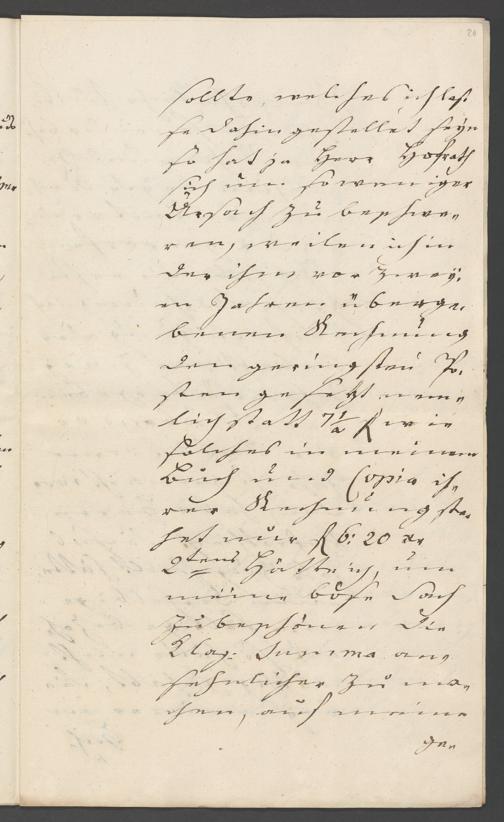 20
sollte, welches ich las„
se dahin gestellet seyn
so hat ja Herr Hofrath
sich um so weniger
Ursach zu beschwe„
ren, weilen ich in
der ihm vor zwey„
en Jahren überge„
benen Rechnung
den geringsten Po„
sten gesetzt nem„
lich statt 7½ f wie
solches in meinem
Buch und Copia ih„
rer Rechnung ste„
het nur f 6: 20 xr
2tens Hätte ich, um
meine böse Sach
zu beschönen die
Klag: Summa an„
sehnlicher zu ma„
chen, auf meine
ge„